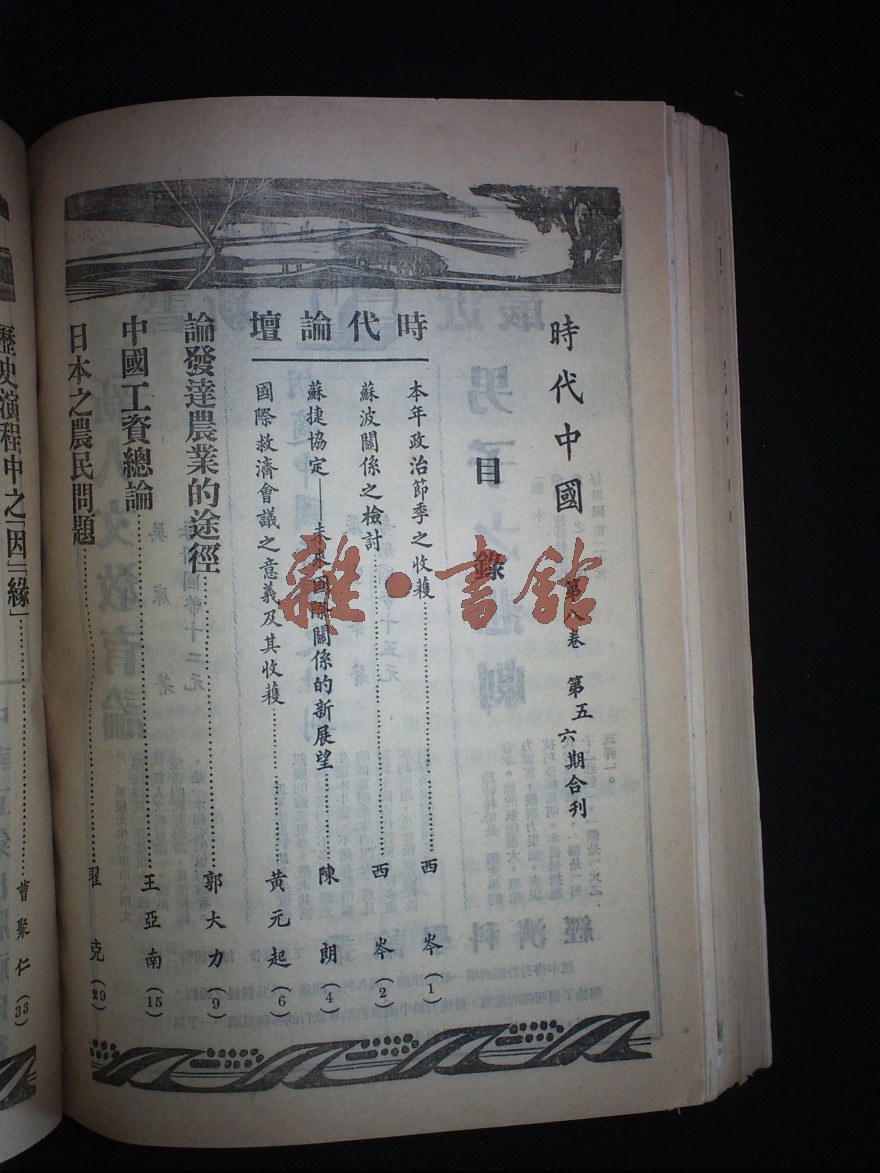 時代中國 第八卷 第五六期合刊
目錄
時代論壇
本年政治節季之收穫……西岑(1)
蘇波關係之檢討……西岑(2)
蘇捷協定——未來國際關係的新展望……陳朗(4)
國際救濟會議之意義及其收穫……黃元起(6)
論發達農業的途徑……郭大力(9)
中國工資總論……王亞南(15)
日本之農民問題……翟克(29)
歷史演程中之「因」「緣」……曹聚仁(33)
雜·書館